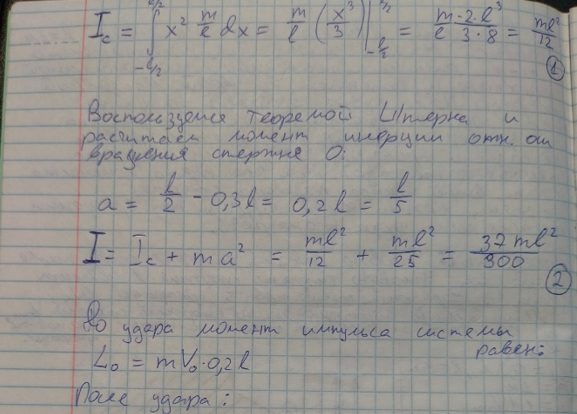 I_c = ∫_{-l/2}^{l/2} x² m/l dx = m/l (x³/3) |_{-l/2}^{l/2} = m·2·l³/l·3·8 = ml²/12
①
Воспользуемся теоремой Штерна и
расчитаем момент инерции отн. оси
вращения стержня O:
a = l/2 - 0,3l = 0,2l = l/5
I = I_c + ma² = ml²/12 + ml²/25 = 37ml²/300
②
До удара момент импульса системы
равен:
L₀ = mV₀·0,2l
После удара: